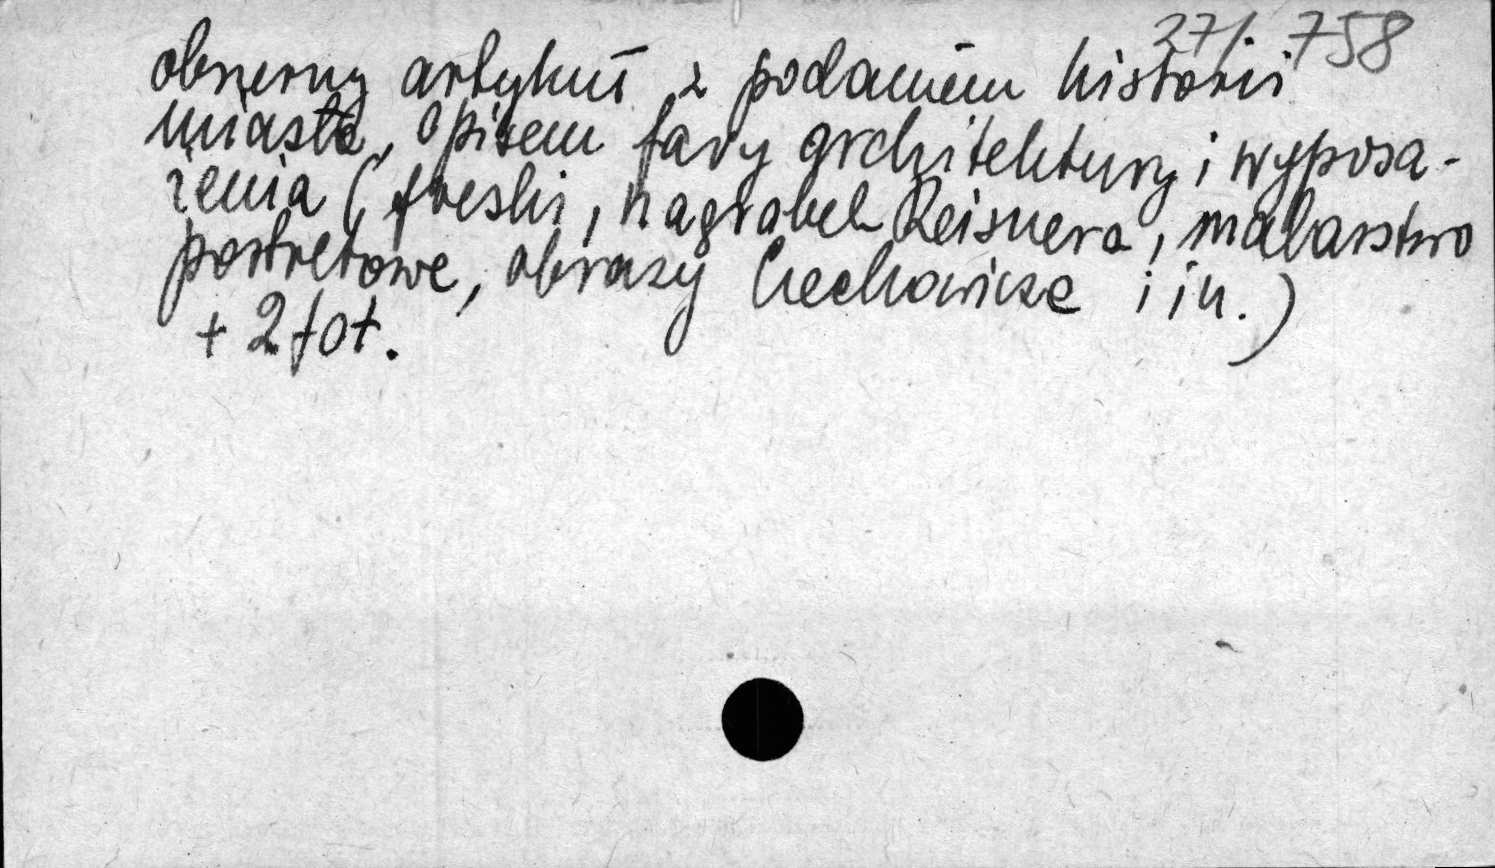 27/758
obszerny artykuł z podaniem historii
miasta, opisem fary architektury i wyposa-
żenia (freski, nagrobek Reisnera, malarstwo
portretowe, obrazy Czechowicza i in.)
+ 2 fot.